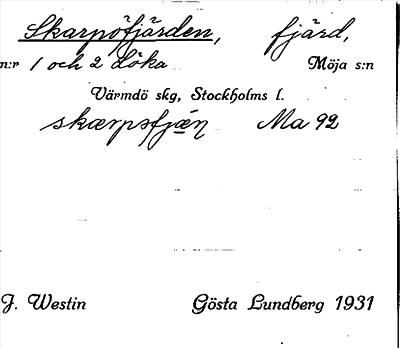 Skarpöfjärden, fjärd,
n:r 1 och 2 Löka Möja s:n
Värmdö skg, Stockholms l.
skærpsfjæ̲n Ma 92
J. Westin Gösta Lundberg 1931